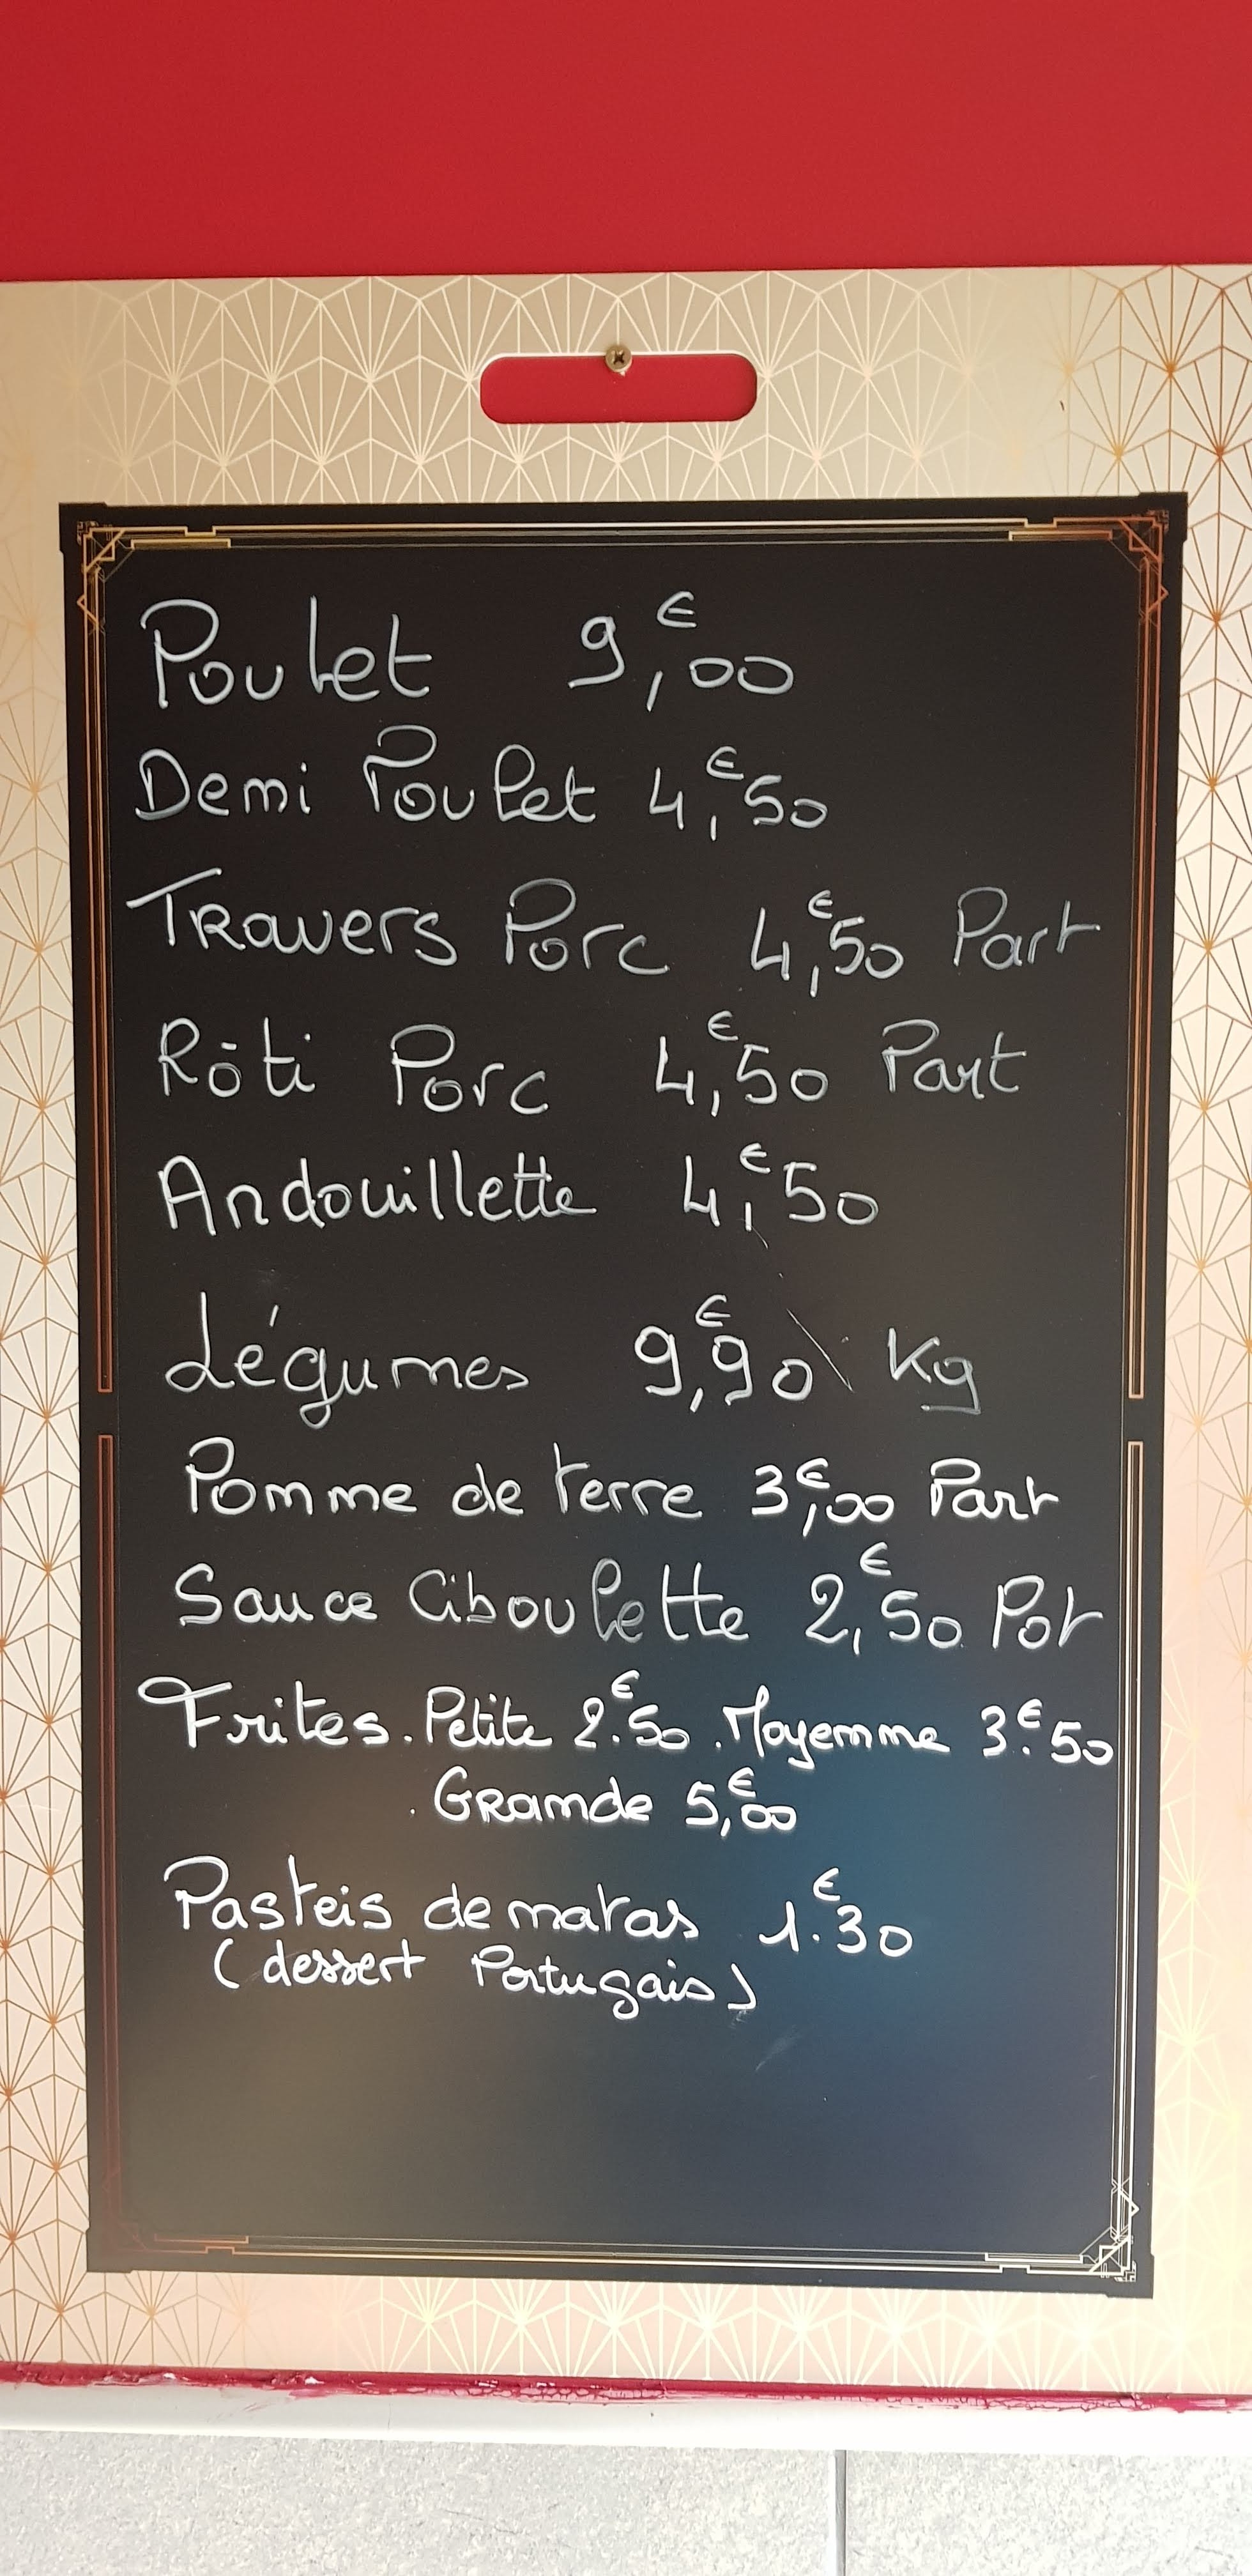 Poulet 9,€00
Demi Poulet 4,€50
Travers Porc 4,€50 Part
Rôti Porc 4,€50 Part
Andouillette 4,€50
Légumes 9,€90 \ Kg
Pomme de terre 3,€00 Part
Sauce Ciboulette 2,€50 Pot
Frites. Petite 2.€50 . Moyemme 3.€50
. Gramde 5,€00
Pasteis de matas 1.€30
(dessert Portugais)